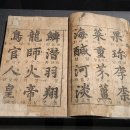 果珍李柰
菜重芥薑
海鹹河淡
鱗潛羽翔
龍師火帝
鳥官人皇